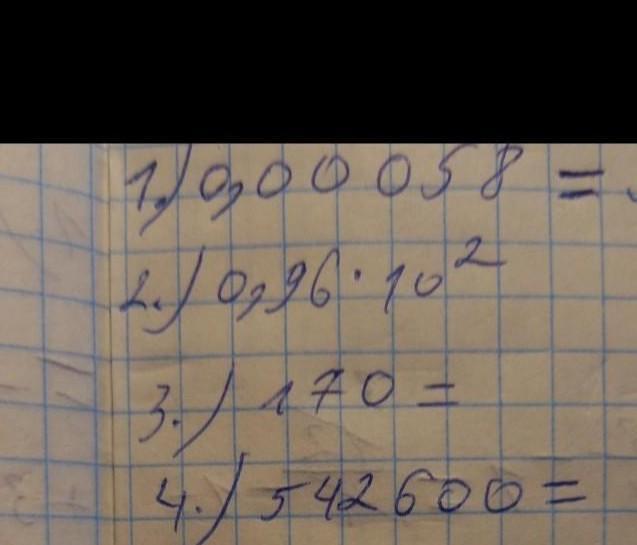 1.) 0,00058 =
2.) 0,96 · 10²
3.) 170 =
4.) 542600 =